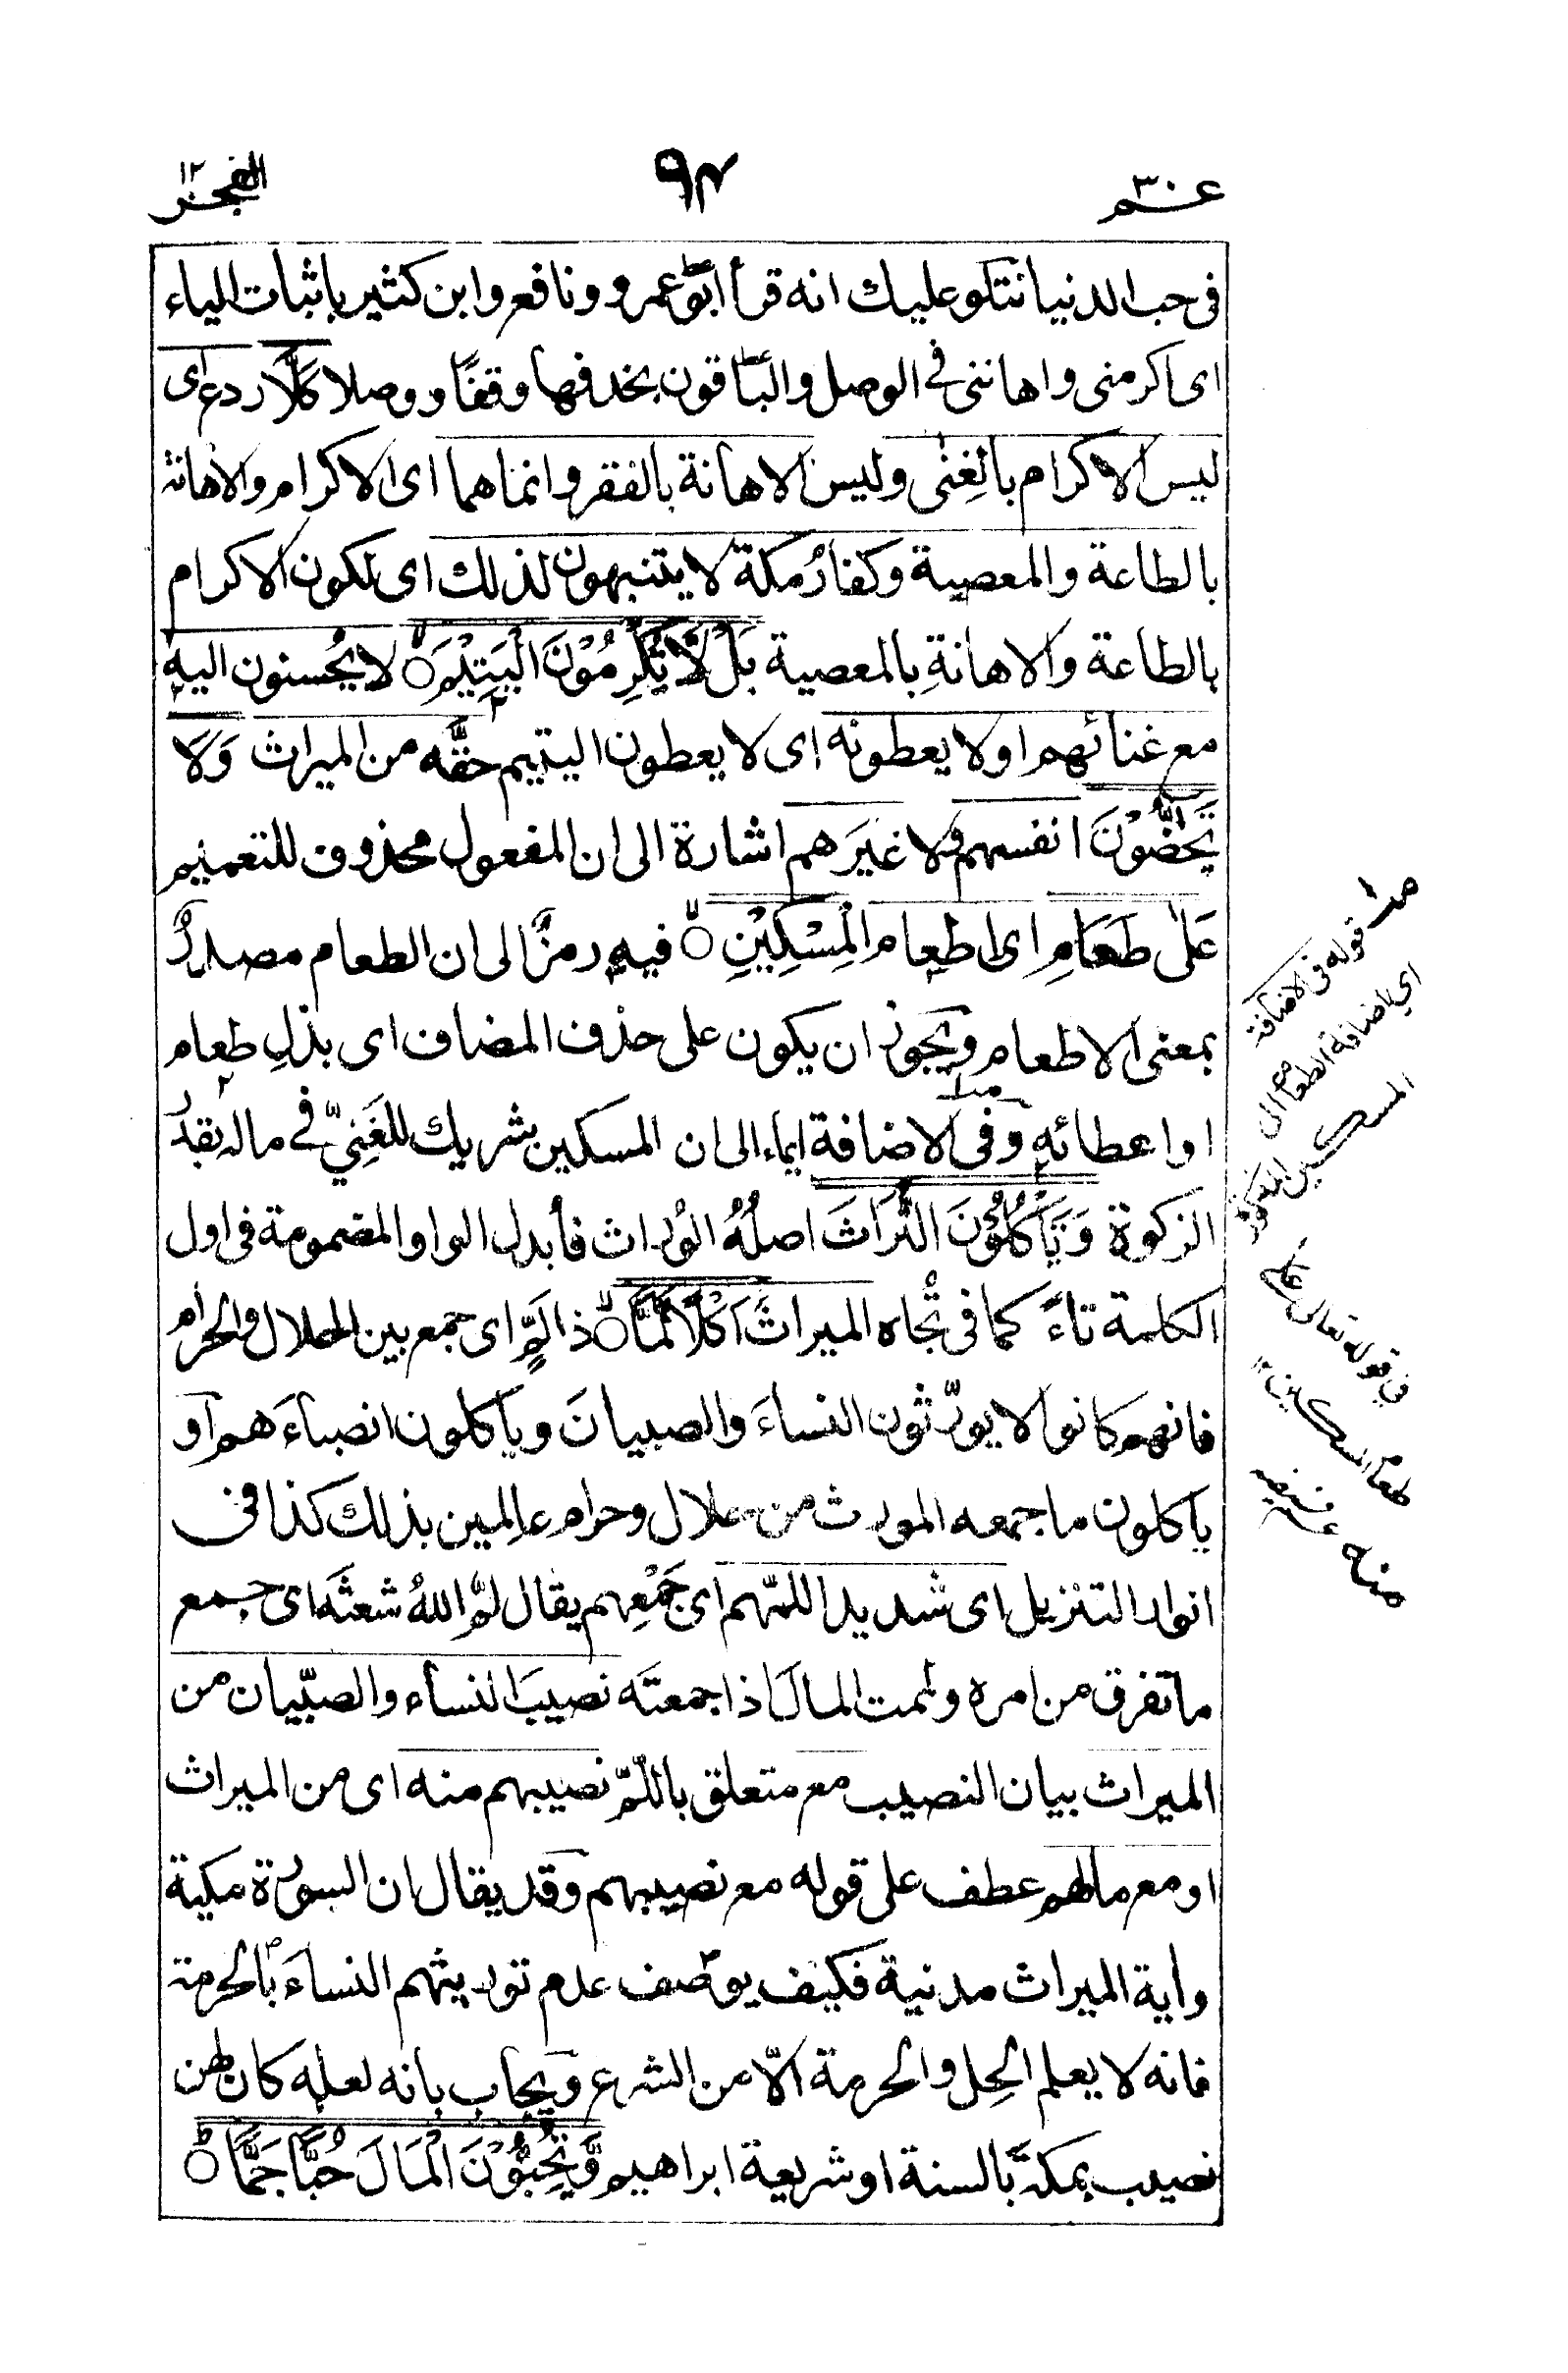 عم ٣٠
٩٤
الفجر
فى حب الدنيا نتلو عليك انه قرأ ابو عمرو ونافع وابن كثير باثبات الياء
اى اكرمنى واهاننى فى الوصل والباقون بحذفها وقفًا ووصلا كَلَّا ردع اى
ليس الاكرام بالغِنٰى وليس الاهانة بالفقر وانما هما اى الاكرام والاهانة
بالطاعة والمعصية وكفارُ مكة لا يتنبهون لذلك اى لكون الاكرام
بالطاعة والاهانةِ بالمعصية بَلْ لَّا تُكْرِمُوْنَ الْيَتِيْمَ لا يُحسنون اليه
مع غنائهم او لا يعطونه اى لا يعطون اليتيم حقَّه من الميراث وَلَا
تَحٰٓضُّوْنَ انفسهم ولا غيرَهم اشارة الى ان المفعول محذوف للتعميم
عَلٰى طَعَامِ اى اطعام الْمِسْكِيْنِ فيه رمزٌ الى ان الطعام مصدرٌ
بمعنى الاطعام ويجوز ان يكون على حذف المضاف اى بذلِ طعام
او اعطائه وفى الاضافة ايماء الى ان المسكين شريك للغَنِيّ فى ماله بقدرُ
الزكوة وَتَأْكُلُوْنَ التُّرَاثَ اصلُهُ الوُراث فأبدل الواو المضمومة فى اول
الكلمة تاءً كما فى تُجاه الميراثَ اَكْلًا لَّمًّا ذا لَمٍّ اى جمع بين الحلال والحرام
فانهم كانوا لا يورّثون النساءَ والصبيانَ ويأكلون انصباءَهم او
يأكلون ما جمعه المورث من حلال وحرام عالِمين بذلك كذا فى
انوار التنزيل اى شديدا للمّهم اى جَمْعِهم يقال لمّ اللهُ شعثَه اى جمع
ما تفرق من امره ولممت المالَ اذا جمعتَه نصيبَ النساء والصبّيان من
الميراث بيان النصيب مع متعلق باللّمّ نصيبهم منه اى من الميراث
او مع مالهم عطف على قوله مع نصيبهم وقد يقال ان السورة مكية
وأية الميراث مدنية فكيف يوصف عدم توريثهم النساءَ بالحرمة
فانه لا يعلم الحِل والحرمة الّا من الشرع ويجاب بانه لعله كان لهن
نصيب بمكة بالسنة او شريعة ابراهيم وَّتُحِبُّوْنَ الْمَالَ حُبًّا جَمًّا
قوله فى الاضافة
اى اضافة الطعام الى
المسكين المذكور
فى قوله تعالى على
طعام المسكين
منه